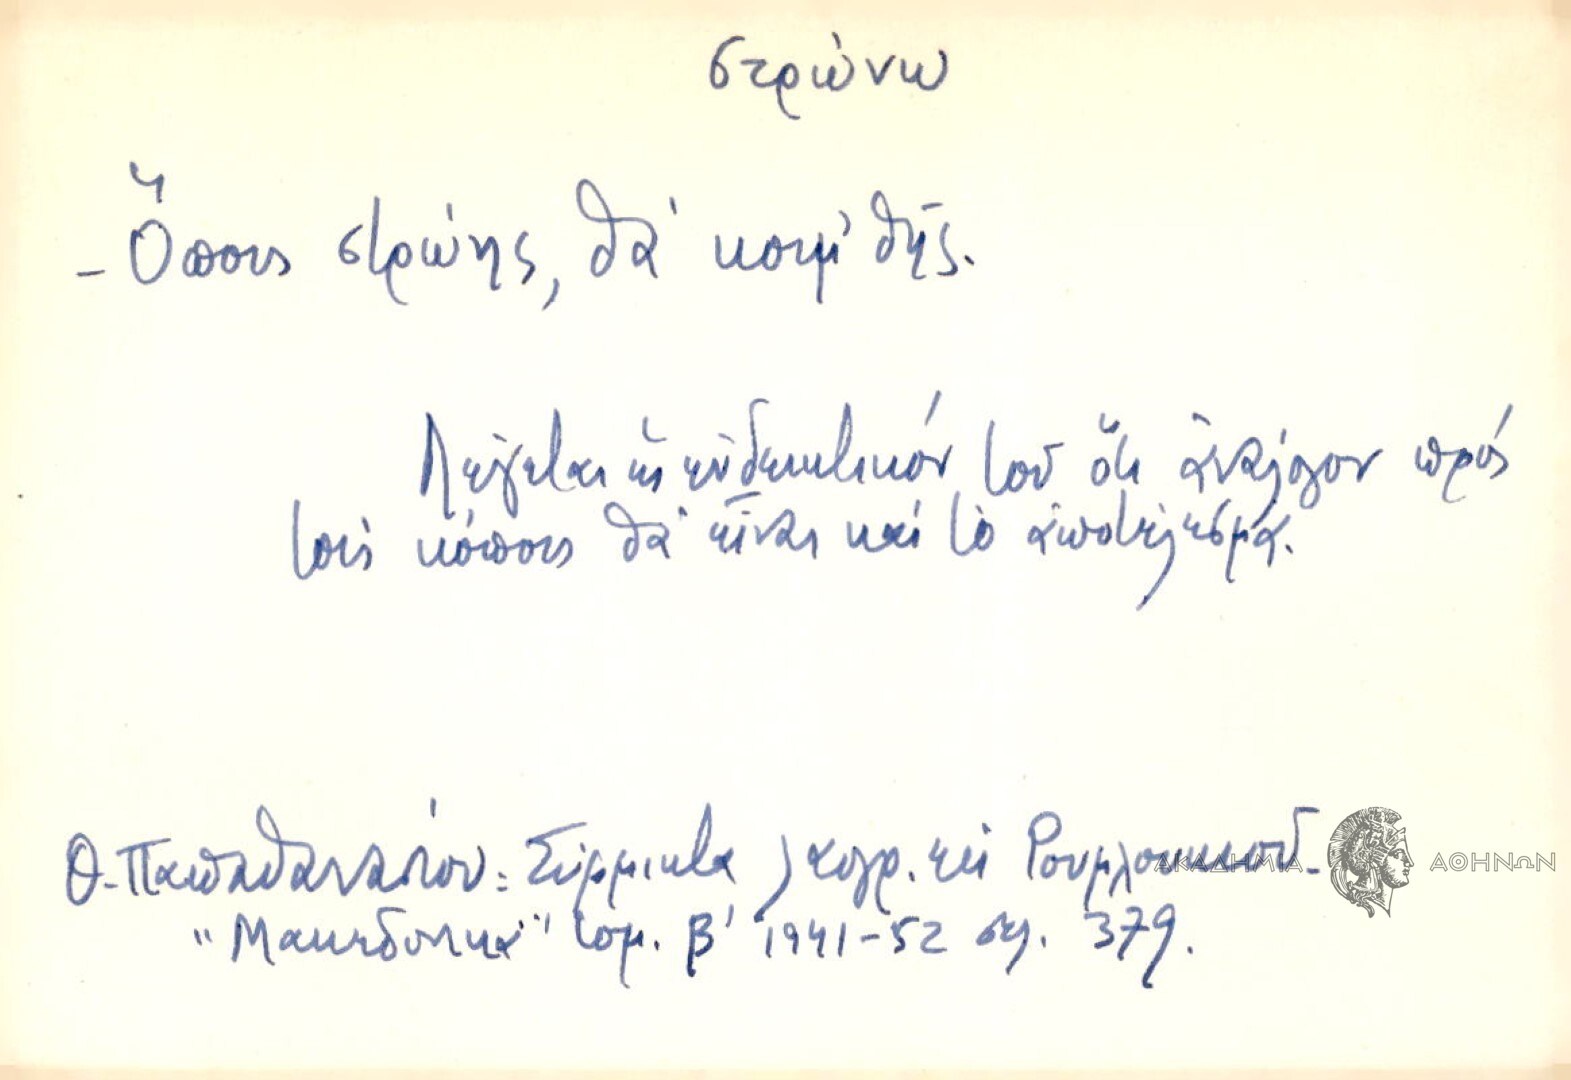 στρώνω
- Ὅπους στρώης, θὰ κοιμ' θῆς.
Λέγεται ὡς ἐνδεικτικόν τοῦ ὅτι ἀνάλογον πρός
τούς κόπους θὰ εἶναι καί τὸ ἀποτέλεσμα.
Θ. Παπαθανασίου: Σύμμικτα λαογρ. ἐκ Ρουμλουκιοῦ -
"Μακεδονικά" τομ. β' 1941-52 σελ. 379.
ΑΚΑΔΗΜΙΑ ΑΘΗΝΩΝ